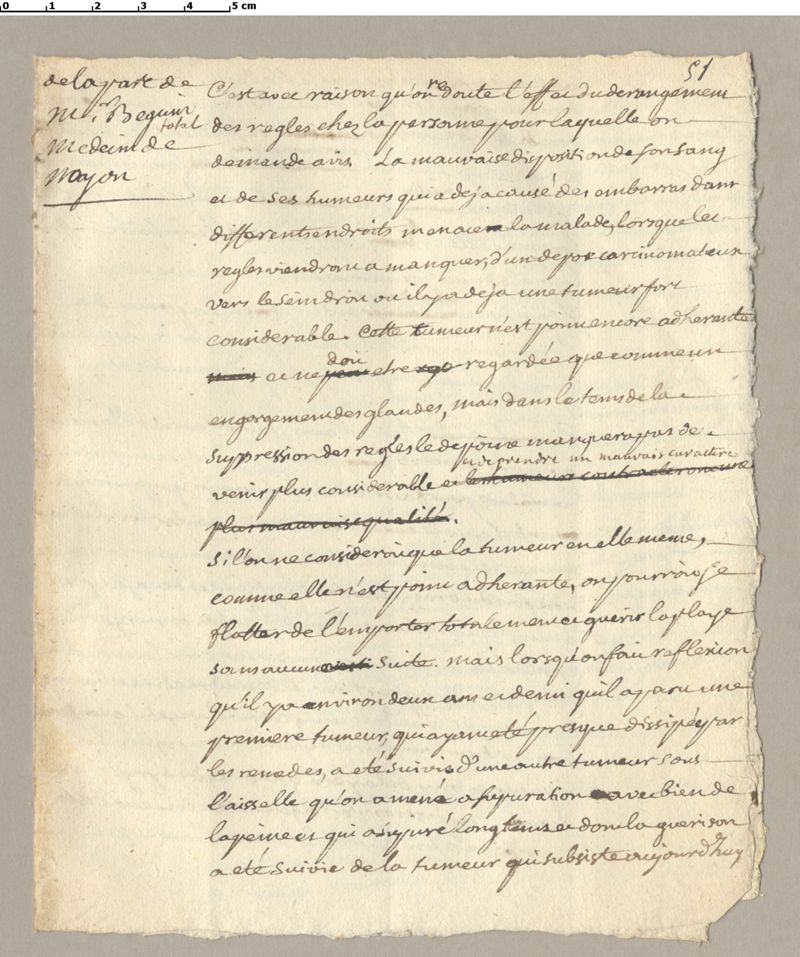 51
de la part de
Mr. Beguin
total
Medecin de
Noyon
C'est avec raison qu'on redoute l'effet du derangement
des regles chez la personne pour laquelle on
demande avis. La mauvaise disposition de son sang
et de ses humeurs qui a deja causé des embarras dans
differents endroits menacent la malade, lorsque les
regles viendront a manquer, d'un depot carcinomateux
vers le sein droit ou il y a deja une tumeur fort
considerable. Cette tumeur n'est point encore adherante
mais et ne doit etre regardée que comme un
engorgement des glandes, mais dans le tems de la
suppression des regles le depot ne manquera pas de
venir plus considerable et de prendre un mauvais caractere
les humeurs contracteront une
plus mauvaise qualité.
Si l'on ne consideroit que la tumeur en elle meme,
comme elle n'est point adherante, on pourroit se
flatter de l'emporter totalement et guérir la playe
sans aucune suite. mais lorsqu'on fait reflexion
qu'il y a environ deux ans et demi qu'il a paru une
premiere tumeur, qui ayant eté presque dissipée par
les remedes, a eté suivie d'une autre tumeur sous
l'aisselle qu'on a mené a supuration avec bien de
la peine et qui a supuré longtems et dont la guerison
a eté suivie de la tumeur qui subsiste aujourd'huy